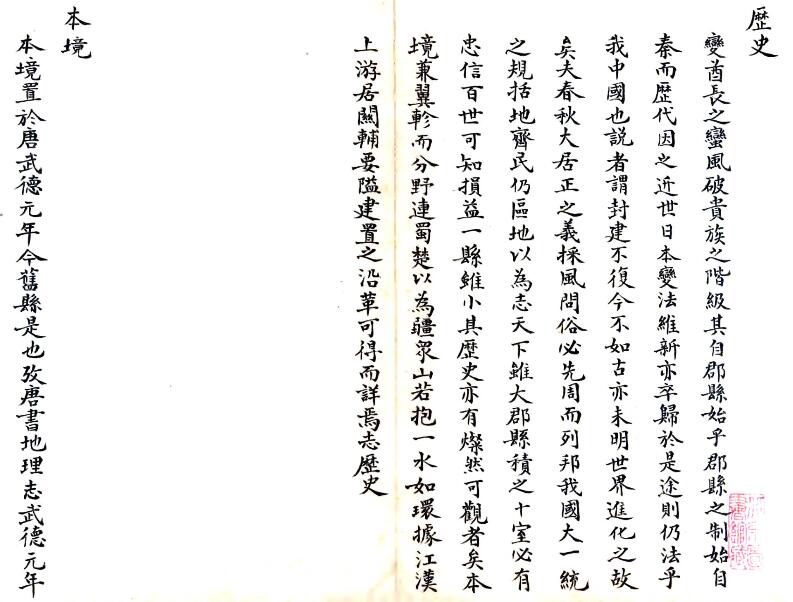 歷史
變酋長之蠻風破貴族之階級其自郡縣始乎郡縣之制始自
秦而歷代因之近世日本變法維新亦卒歸於是途則仍法乎
我中國也説者謂封建不復今不如古亦未明世界進化之故
矣夫春秋大居正之義採風問俗必先周而列邦我國大一統
之規括地齊民仍區地以為志天下雖大郡縣積之十室必有
忠信百世可知損益一縣雖小其歷史亦有燦然可觀者矣本
境兼翼軫而分野連蜀楚以為疆衆山若抱一水如環據江漢
上游居關輔要隘建置之沿革可得而詳焉志歷史
本境
本境置於唐武德元年今舊縣是也攷唐書地理志武德元年